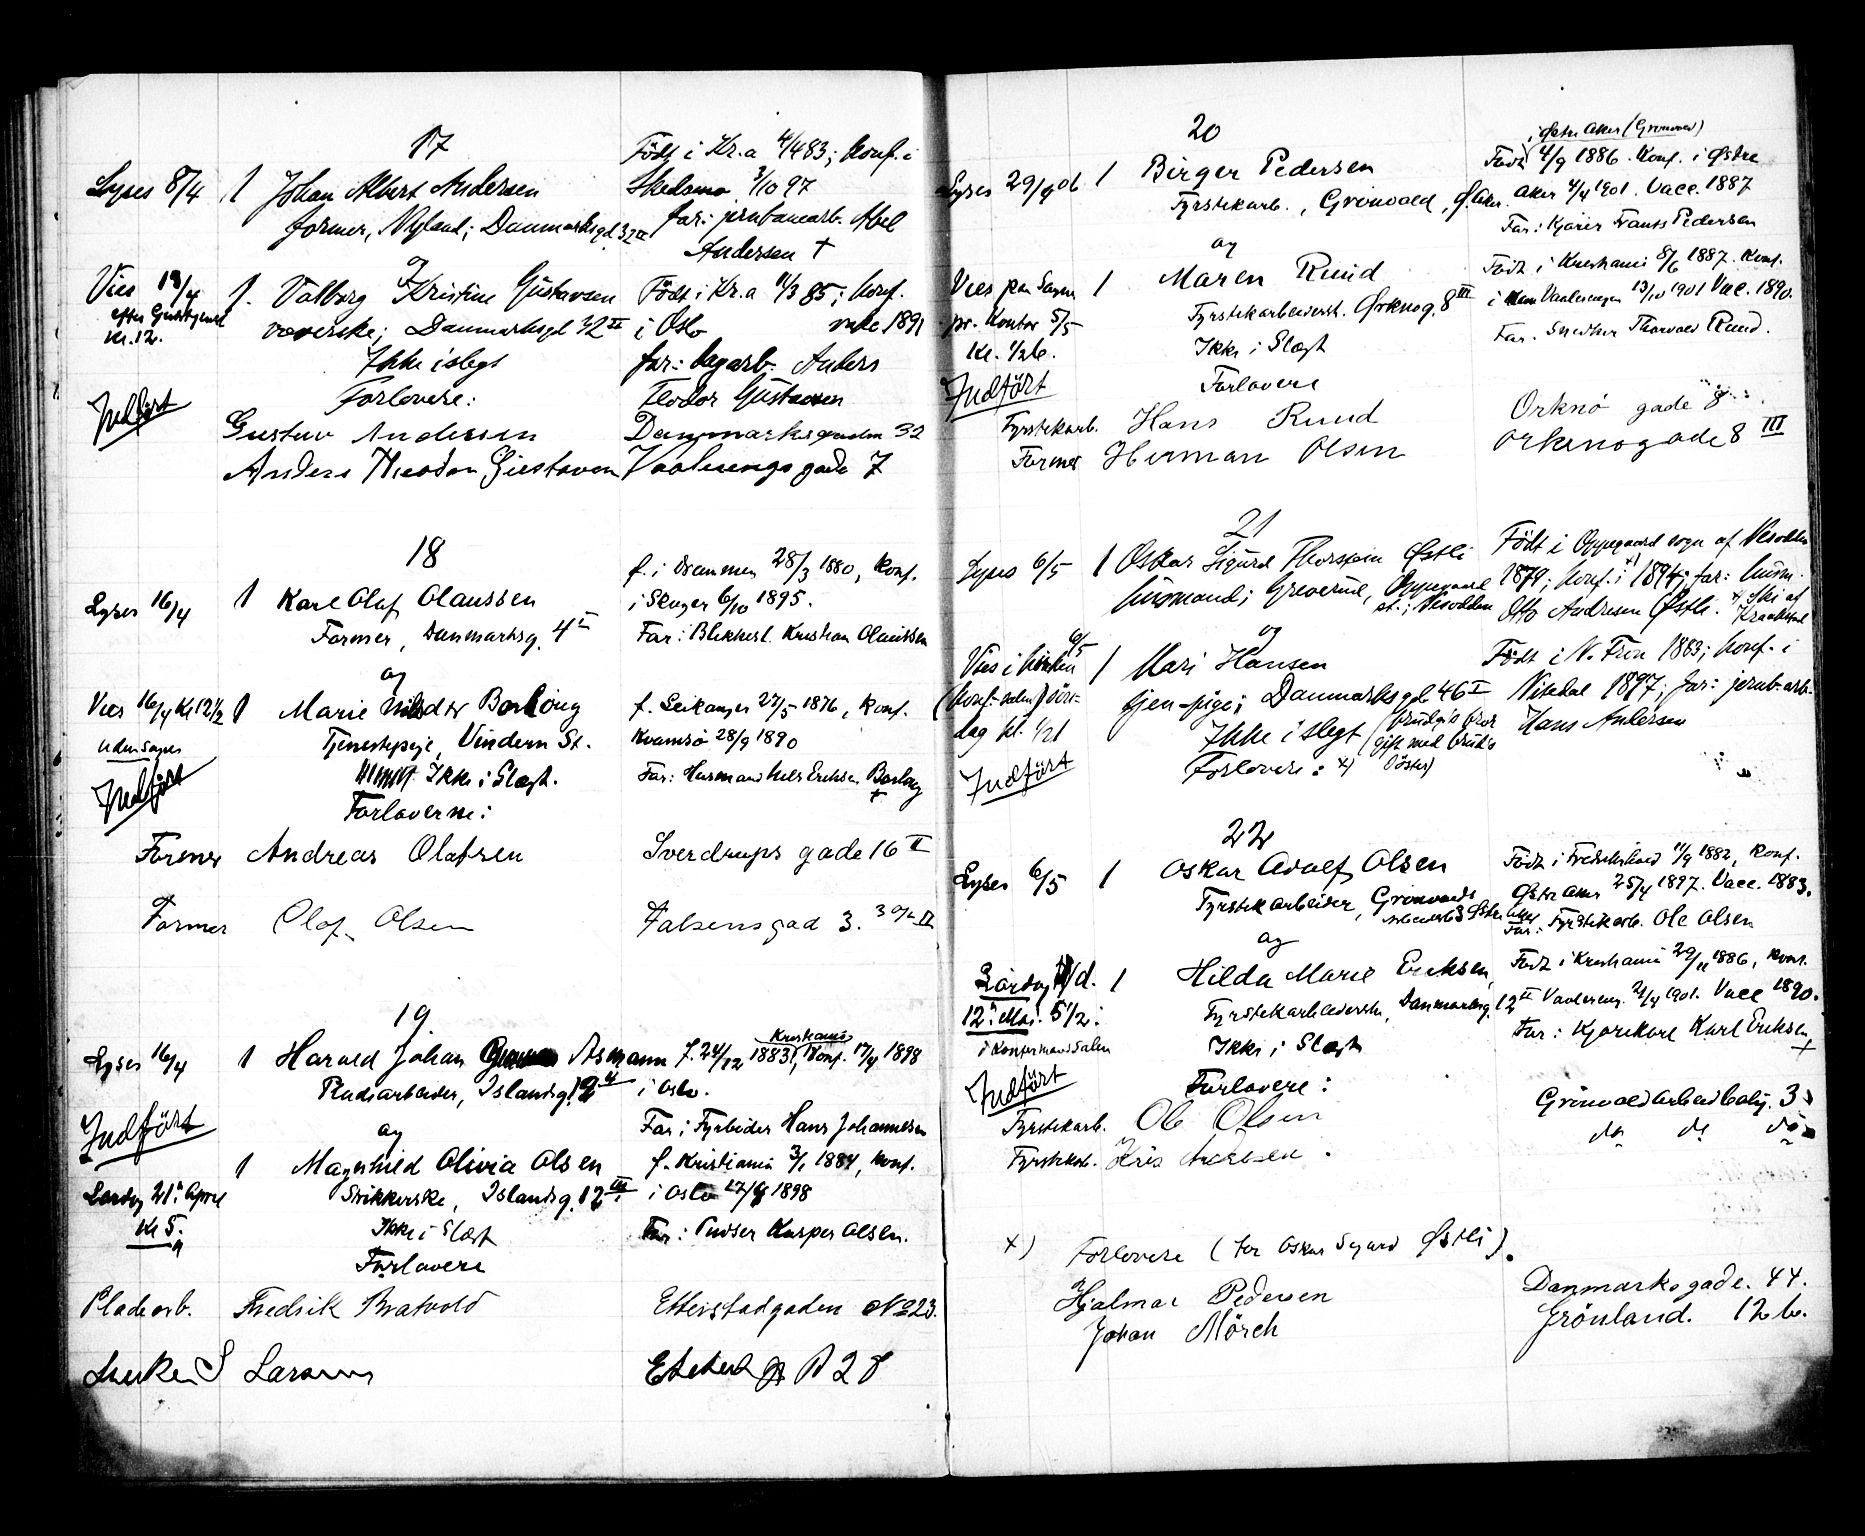 17
Lyses 8/4 1 Johan Albert Andersen
former, Nyland; Danmarksgd 32 II
Født i Kr.a 4/4 83; konf. i
Skedsmo 3/10 97
far: jernbanearb. Abel
Andersen †
og
Vies 18/4 1. Valborg Kristine Gustavsen
efter Gudstjenest
Kl. 12.
væverske; Danmarksgd 32 II
Født i Kr.a 11/3 85; konf.
i Oslo vakc 1891
Ikke i slegt
far: dagarb. Anders
Teodor Gustavsen
Indført
Forlovere:
Gustav Andersen Danmarksgaden 32
Anders Theodor Gustavsen Vaalerengs gade 7
18
Lyses 16/4 1 Karl Olaf Olaussen
Former, Danmarksg. 4 I
f. i Drammen 28/3 1880, Konf.
i Skoger 6/10 1895.
Far: Blikkensl. Kristian Olaussen
og
Vies 16/4 Kl 12 1/2 1 Marie Borlöug
uden Sager
Tjenestepige, Vindern St.
f. Leikanger 27/5 1876, Konf.
Kvamsö 28/9 1890
Ikke i Slægt.
Far: Husmand Nils Eriksen Borlaug †
Indført
Forloverne:
Former Andreas Olafsen Sverdrups gade 16 II
Former Olaf Olsen Falsensgad 3. 3 II
19.
Lyses 16/4 1 Harald Johan Asmann
Pladearbeider, Islandsg. 12
f. 24/12 1883 Kristiania, Konf. 17/4 1898
i Oslo.
Indført
Far: Fyrbøder Hans Johannesen
og
1 Magnhild Olivia Olsen
Lørdag 21. April
Kl 5.
Strikkerske, Islandsg. 12 III
f. Kristiania 3/1 1884, konf.
i Oslo 17/4 1898
Ikke i Slægt
Far: Pudser Kasper Olsen.
Forlovere
Pladearb. Fredrik Bratvold Etterstadgaden No 23.
Larsen 28
20
Lyses 29/4 06 1 Birger Pedersen
Fyrstikarb., Grönvold, Ø. Aker.
i Østre Aker (Grönvold)
Født 4/9 1886. Konf. i Østre
Aker 4/4 1901. Vacc. 1887
Far: Kjører Frants Pedersen
og
Vies paa Sogne
pr. Kontor 5/5
Kl. 1/2 6.
1 Maren Ruud
Fyrstikarbeidersk. Ørknög. 8 III
Født i Kristiania 8/6 1887. Konf.
i Vaalerengen 13/10 1901 Vac. 1890.
Far. Snedker Thorvald Ruud.
Ikke i Slægt
Indført
Forlovere
Fyrstikarb. Hans Ruud Orknö gade 8
Former Herman Olsen Orkenögade 8 III
21
Lyses 6/5 1 Oskar Sigurd Thorstein Østli
husmand; Greverud, Oppegaard
st.; Nesodden
Født i Oppegaard sogn af Nesodden
1879; konf. i x) 1894; far: husm.
Otto Andresen Østli.
x) Ski af
Kraakstad
og
Vies i kirken 6/5
(konf.-salen) søn-
dag kl. 1/2 1
1 Mari Hansen
tjen.-pige; Danmarksgd 46 I
Født i N. Fron 1883; konf. i
Nitedal 1897; far: jernb.arb.
Hans Andersen
Ikke i slegt (brudg's bror
gift med brud's
søster)
Indført
Forlovere: x)
22
Lyses 6/5 1 Oskar Adolf Olsen
Fyrstikarbeider, Grönvolds
Arbeiderb. 3 Østre Aker
Født i Fredrikshald 11/9 1882, Konf.
Østre Aker 25/4 1897. Vacc. 1883.
Far: Fyrstikarb. Ole Olsen
og
Lørdag d.
12. Mai. 5 1/2:
i Konfirmandsalen
1 Hilda Marie Eriksen,
Fyrstikarbeiderske, Danmarksg. 12 II
Født i Kristiania 29/11 1886, Konf.
Vaalereng. 21/4 1901. Vacc 1890.
Far: Kjørekarl Karl Eriksen †
Ikke i Slægt
Indført
Forlovere:
Fyrstikarb. Ole Olsen Grönvold arbeiderbolig. 3
Fyrstikarb. do do do
x) Forlovere (for Oskar Sigurd Østli).
Hjalmar Pedersen Danmarksgade. 44.
Johan Mörch Grönland. 12 b.